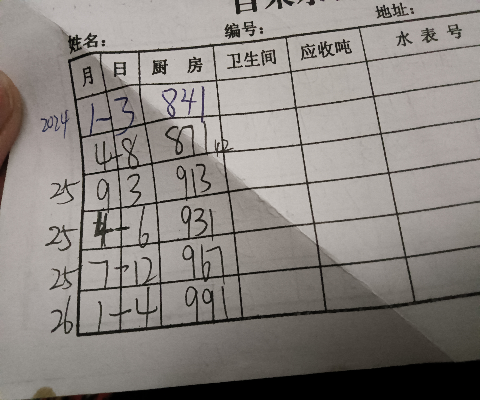 姓名： 编号： 地址：
月 日 厨 房 卫生间 应收吨 水 表 号
2024 1-3 841
4-8 871
25 9 3 913
25 4-6 931
25 7-12 967
26 1-4 991